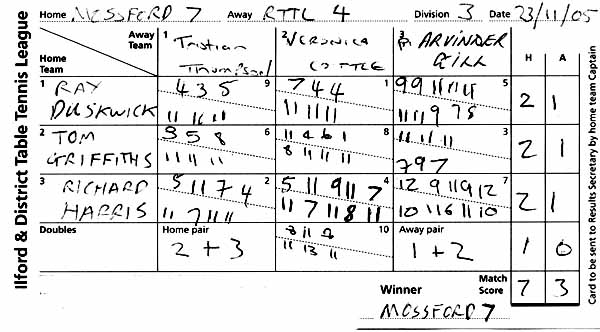 Ilford & District Table Tennis League
Home MOSSFORD 7 Away RTTL 4 Division 3 Date 23/11/05
Away Team
Home Team
1 Tristian Thompson
2 VERONICA COTTLE
3 ARVINDER GILL
H A
1 RAY DUSKWICK
4 3 5 9
11 11 11
7 4 4 1
11 11 11
9 9 11 11 11 5
11 11 9 7 5
2 1
2 TOM GRIFFITHS
9 5 8 6
11 11 11
11 4 6 1 8
8 11 11 11
11 11 11 3
7 9 7
2 1
3 RICHARD HARRIS
5 11 7 4 2
11 7 11 11
5 11 9 11 7 4
11 7 11 8 11
12 9 11 9 12 7
10 11 6 11 10
2 1
Doubles
Home pair
2 + 3
8 11 8 10
11 13 11
Away pair
1 + 2
1 0
Match Score 7 3
Winner
MOSSFORD 7
Card to be sent to Results Secretary by home team Captain